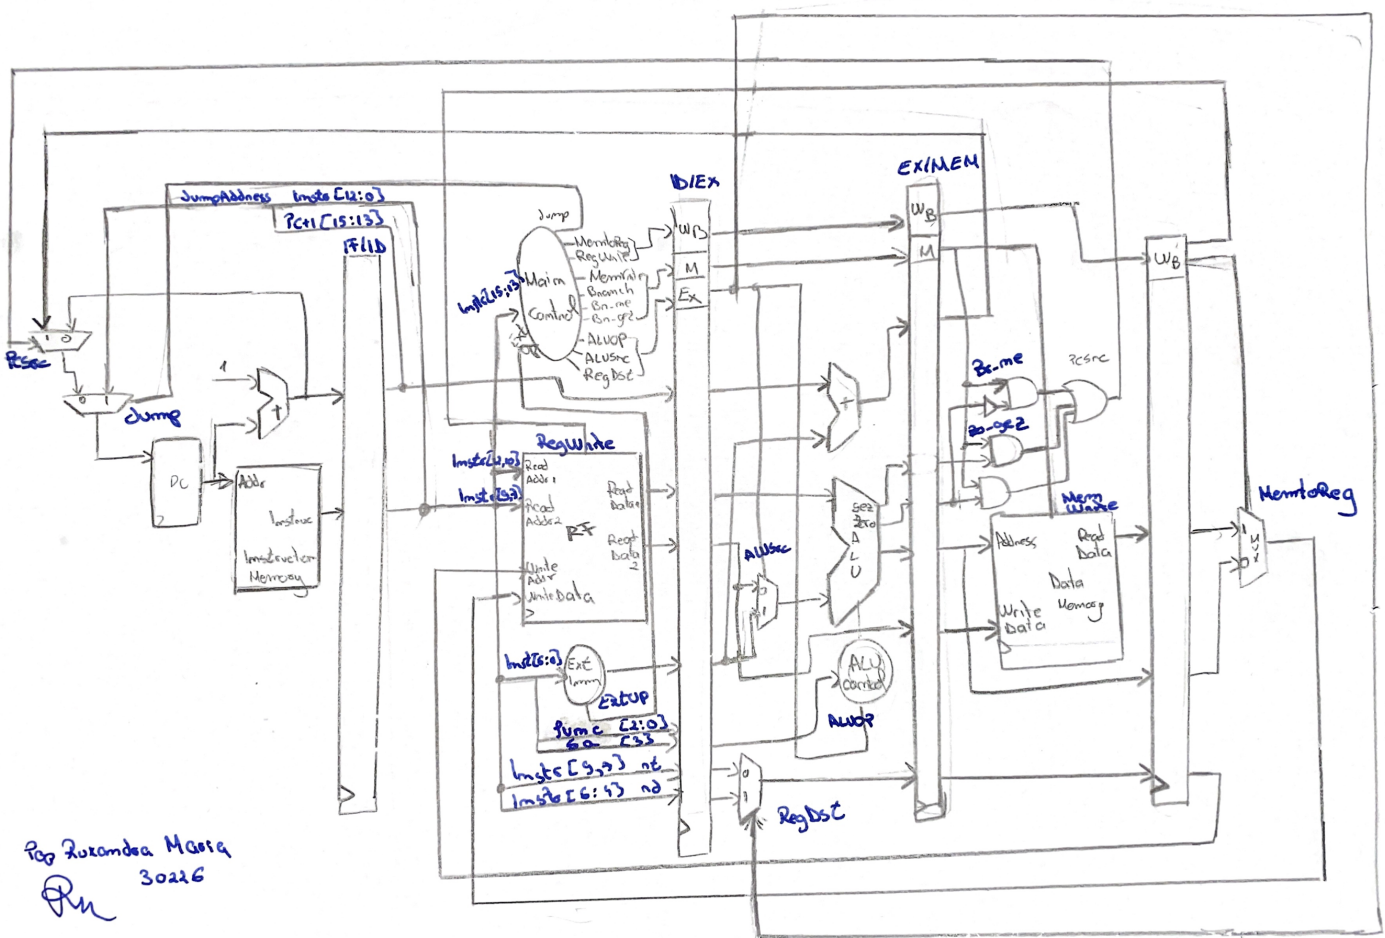 JumpAddress Instr [12:0]
PC+1 [15:13]
IF/ID
ID/EX
EX/MEM
Jump
Main
Control
Instr[15:13]
MemtoReg
RegWrite
MemWr
Branch
Br_ne
Br_gez
ALUOP
ALUSrc
RegDst
WB
M
EX
WB
M
WB
1 0
PCSrc
0 1
Jump
1
+
PC
Addr
Instruc
Instruction
Memory
RegWrite
Read
Addr1
Instr[9,7]
Read
Addr2
RF
Write
Addr
Write Data
Read
Data1
Read
Data
2
Instr[6:0]
Ext
Imm
ExtOP
func [2:0]
sa [3]
Instr [9,7] rt
Instr [6:4] rd
+
ALUSrc
0
1
gez
Zero
ALU
ALU
control
ALUOP
0
1
RegDst
Br_ne
Br_gez
PCSrc
Mem
Write
Address
Read
Data
Data
Memory
Write
Data
MemtoReg
1
MUX
0
Pop Ruxandra Maria
30226